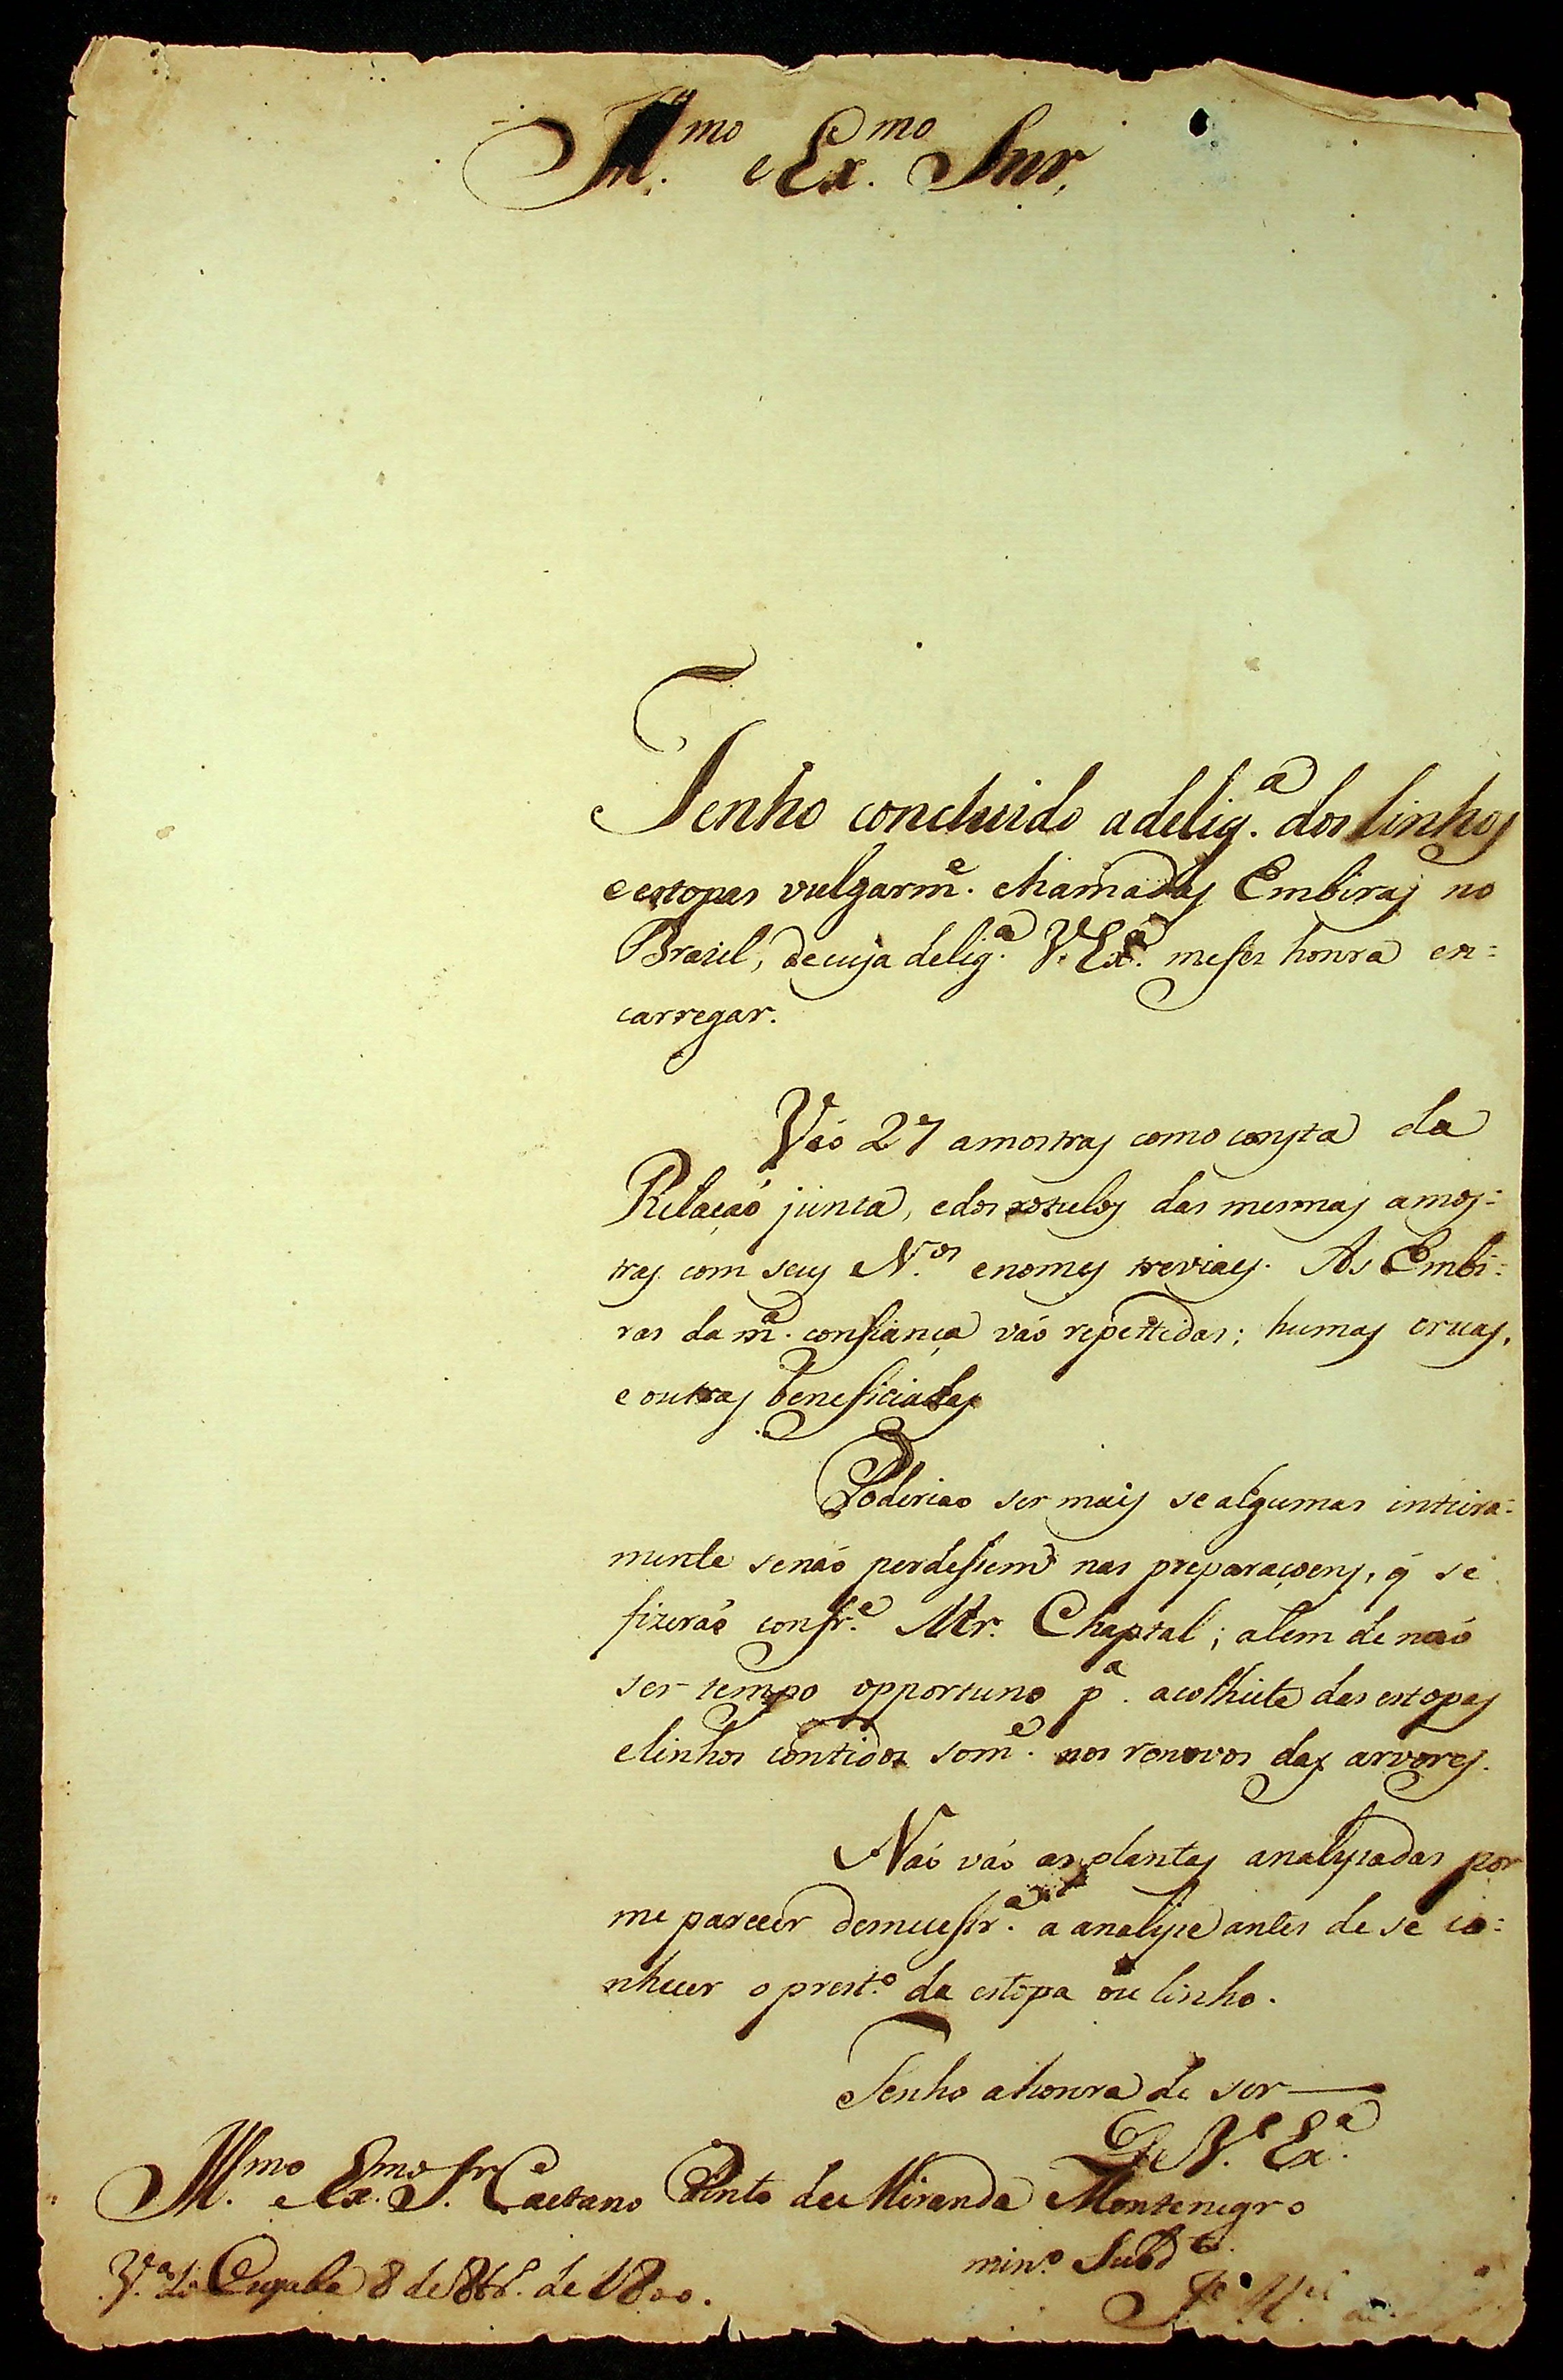 Ill.mo e Ex.mo Snr.
Tenho concluido a delig.a dos linhos
e estopas vulgarm.e chamadas Embiras no
Brazil, de cuja delig.a V. Ex.a me fez honra en=
carregar.
Vão 27 amostras como consta da
Relação junta, e dos rotulos das mesmas amos=
tras com seus N.os e nomes treviaes. As Embi=
ras da m.a confiança vão repettidas; humas cruas,
e outras beneficiadas
Poderiao ser mais se algumas inteira=
mente senão perdessem nas preparaçoens, q̃ se
fizerão confr.e Mr. Chaptal; alem de não
ser tempo opportuno p.a acolheita das estopas
e linhos contidos som.e nos renovos das arvores.
Não vão as plantas analyzadas por
me parecer desnecessr.a a analyze antes de se co=
nhecer o prest.o da estopa ou linho.
Tenho a honra de ser
De V. Ex.a
Ill.mo e Ex.mo Snr. Caetano Pinto de Miranda Montenegro
min.o Subd.to
V.a do Cuyaba 8 de 8br.o de 1800.
J.e M.el de